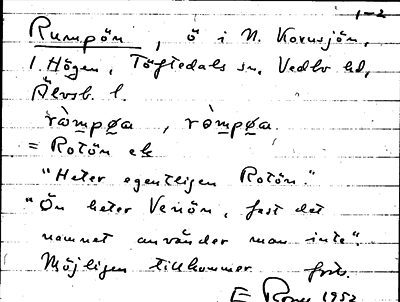 1-2
Rumpön, ö i N. Kornsjön,
1. Högen, Töftedals sn, Vedbo hd,
Älvsb. l.
ràmpøa, ròmpøa.
= Rotön ek
"Heter egentligen Rotön."
"Ön heter Venön, fast det
namnet använder man inte".
Möjligen tillkommer forts.
E 1952